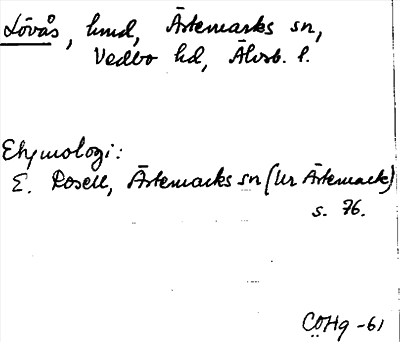 Lövås, hmd, Ärtemarks sn,
Vedbo hd, Älvsb. l.
Etymologi:
E. Rosell, Ärtemarks sn (ur Ärtemark)
s. 76.
COHg -61